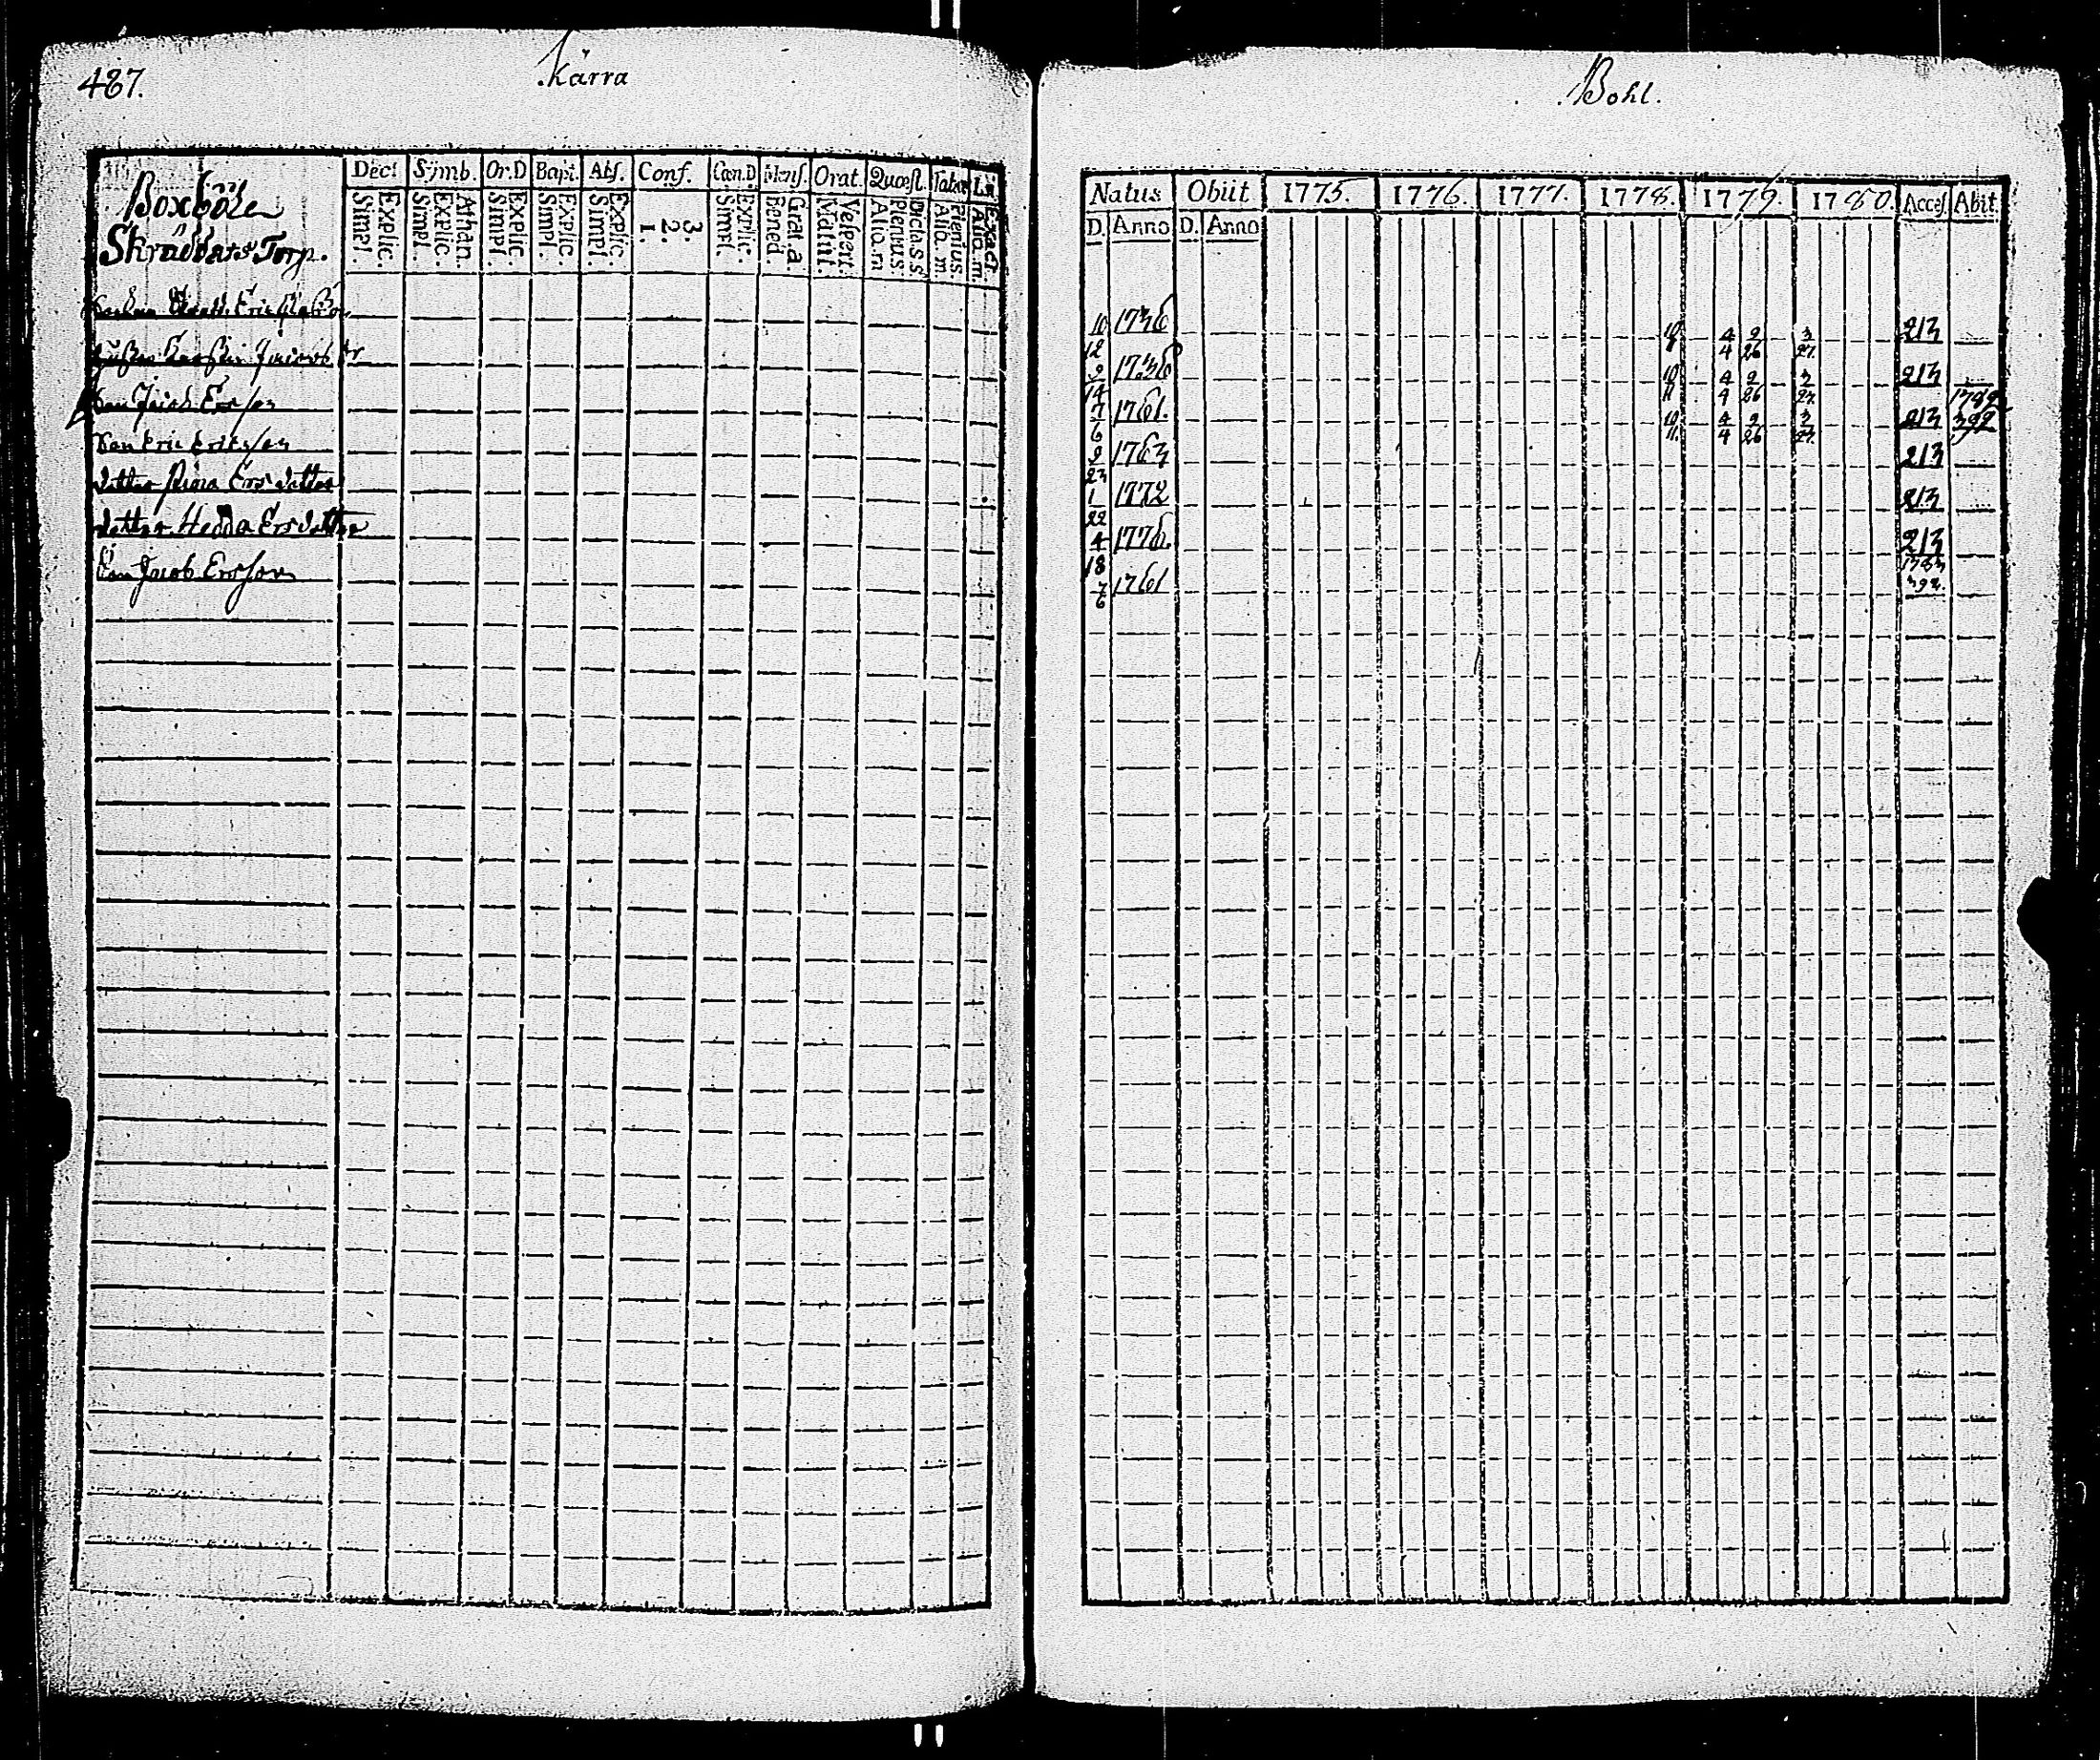 487.
Kärra
Bohl.
Boxböle
Skräddars Torp.
Decl Symb. Or.D Bapt. Abs. Conf. Cœn.D Mens. Orat. Quæst. Tabu
Simpl. Explic. Simpl. Explic. Athan. Simpl. Explic. Simpl. Explic. Simpl. Explic. 1. 2. 3. Simpl. Explic. Bened. Grat. a. Matut. Vespert. Alio. m Plenius. Dicta. s. s. Alio. m. Plenius. Alio. m Exact.
Natus Obiit 1775. 1776. 1777. 1778. 1779. 1780. Acces. Abit
D. Anno D. Anno
Eric
10 12 1736 4 4 2 26 3 27. 213
Jacobs dr
2 14 1736 4 4 2 26 3 27. 213
Son Ersson
7 6 1761. 10 11. 4 4 2 26 3 27. 213 392
Son Eric Ericsson
2 23 1763 213
dotter Ers dotter
1 22 1772 213
dotter Hedda Ers dotter
4 18 1776. 213
Son Jacob Ersson
7 6 1761 1783 392